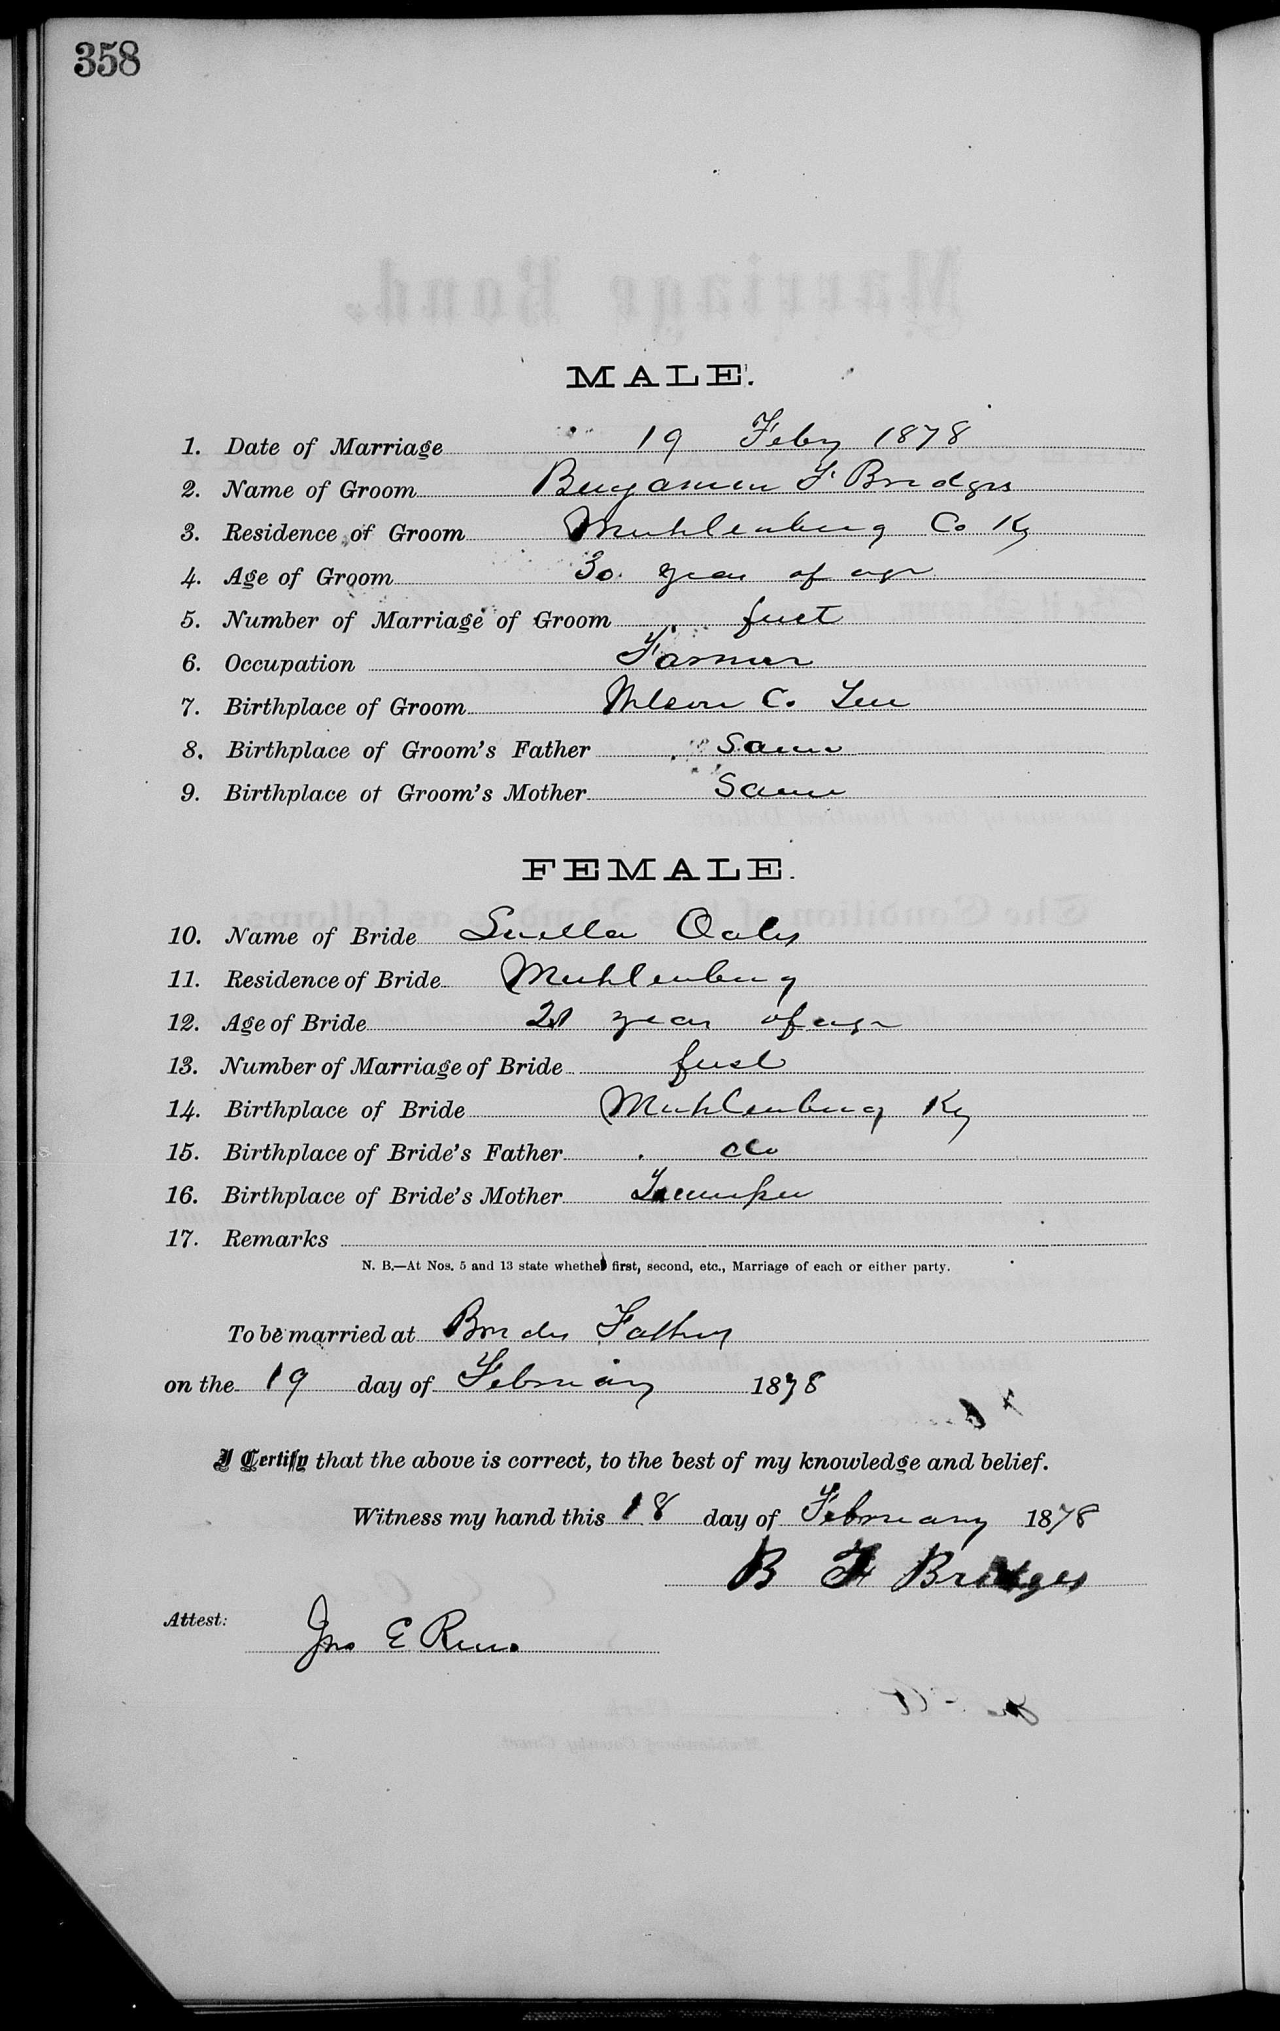 358
MALE.
1. Date of Marriage 19 Feby 1878
2. Name of Groom Benjamin F Bridges
3. Residence of Groom Muhlenberg Co Ky
4. Age of Groom 30 years of age
5. Number of Marriage of Groom first
6. Occupation Farmer
7. Birthplace of Groom Wilson Co Ten
8. Birthplace of Groom's Father Same
9. Birthplace of Groom's Mother Same
FEMALE.
10. Name of Bride Luella Oates
11. Residence of Bride Muhlenberg
12. Age of Bride 21 years of age
13. Number of Marriage of Bride first
14. Birthplace of Bride Muhlenberg Ky
15. Birthplace of Bride's Father do
16. Birthplace of Bride's Mother
17. Remarks
N. B.—At Nos. 5 and 13 state whether first, second, etc., Marriage of each or either party.
To be married at Brides Fathers
on the 19 day of February 1878
I Certify that the above is correct, to the best of my knowledge and belief.
Witness my hand this 18 day of February 1878
B F Bridges
Attest:
Jno E Reno